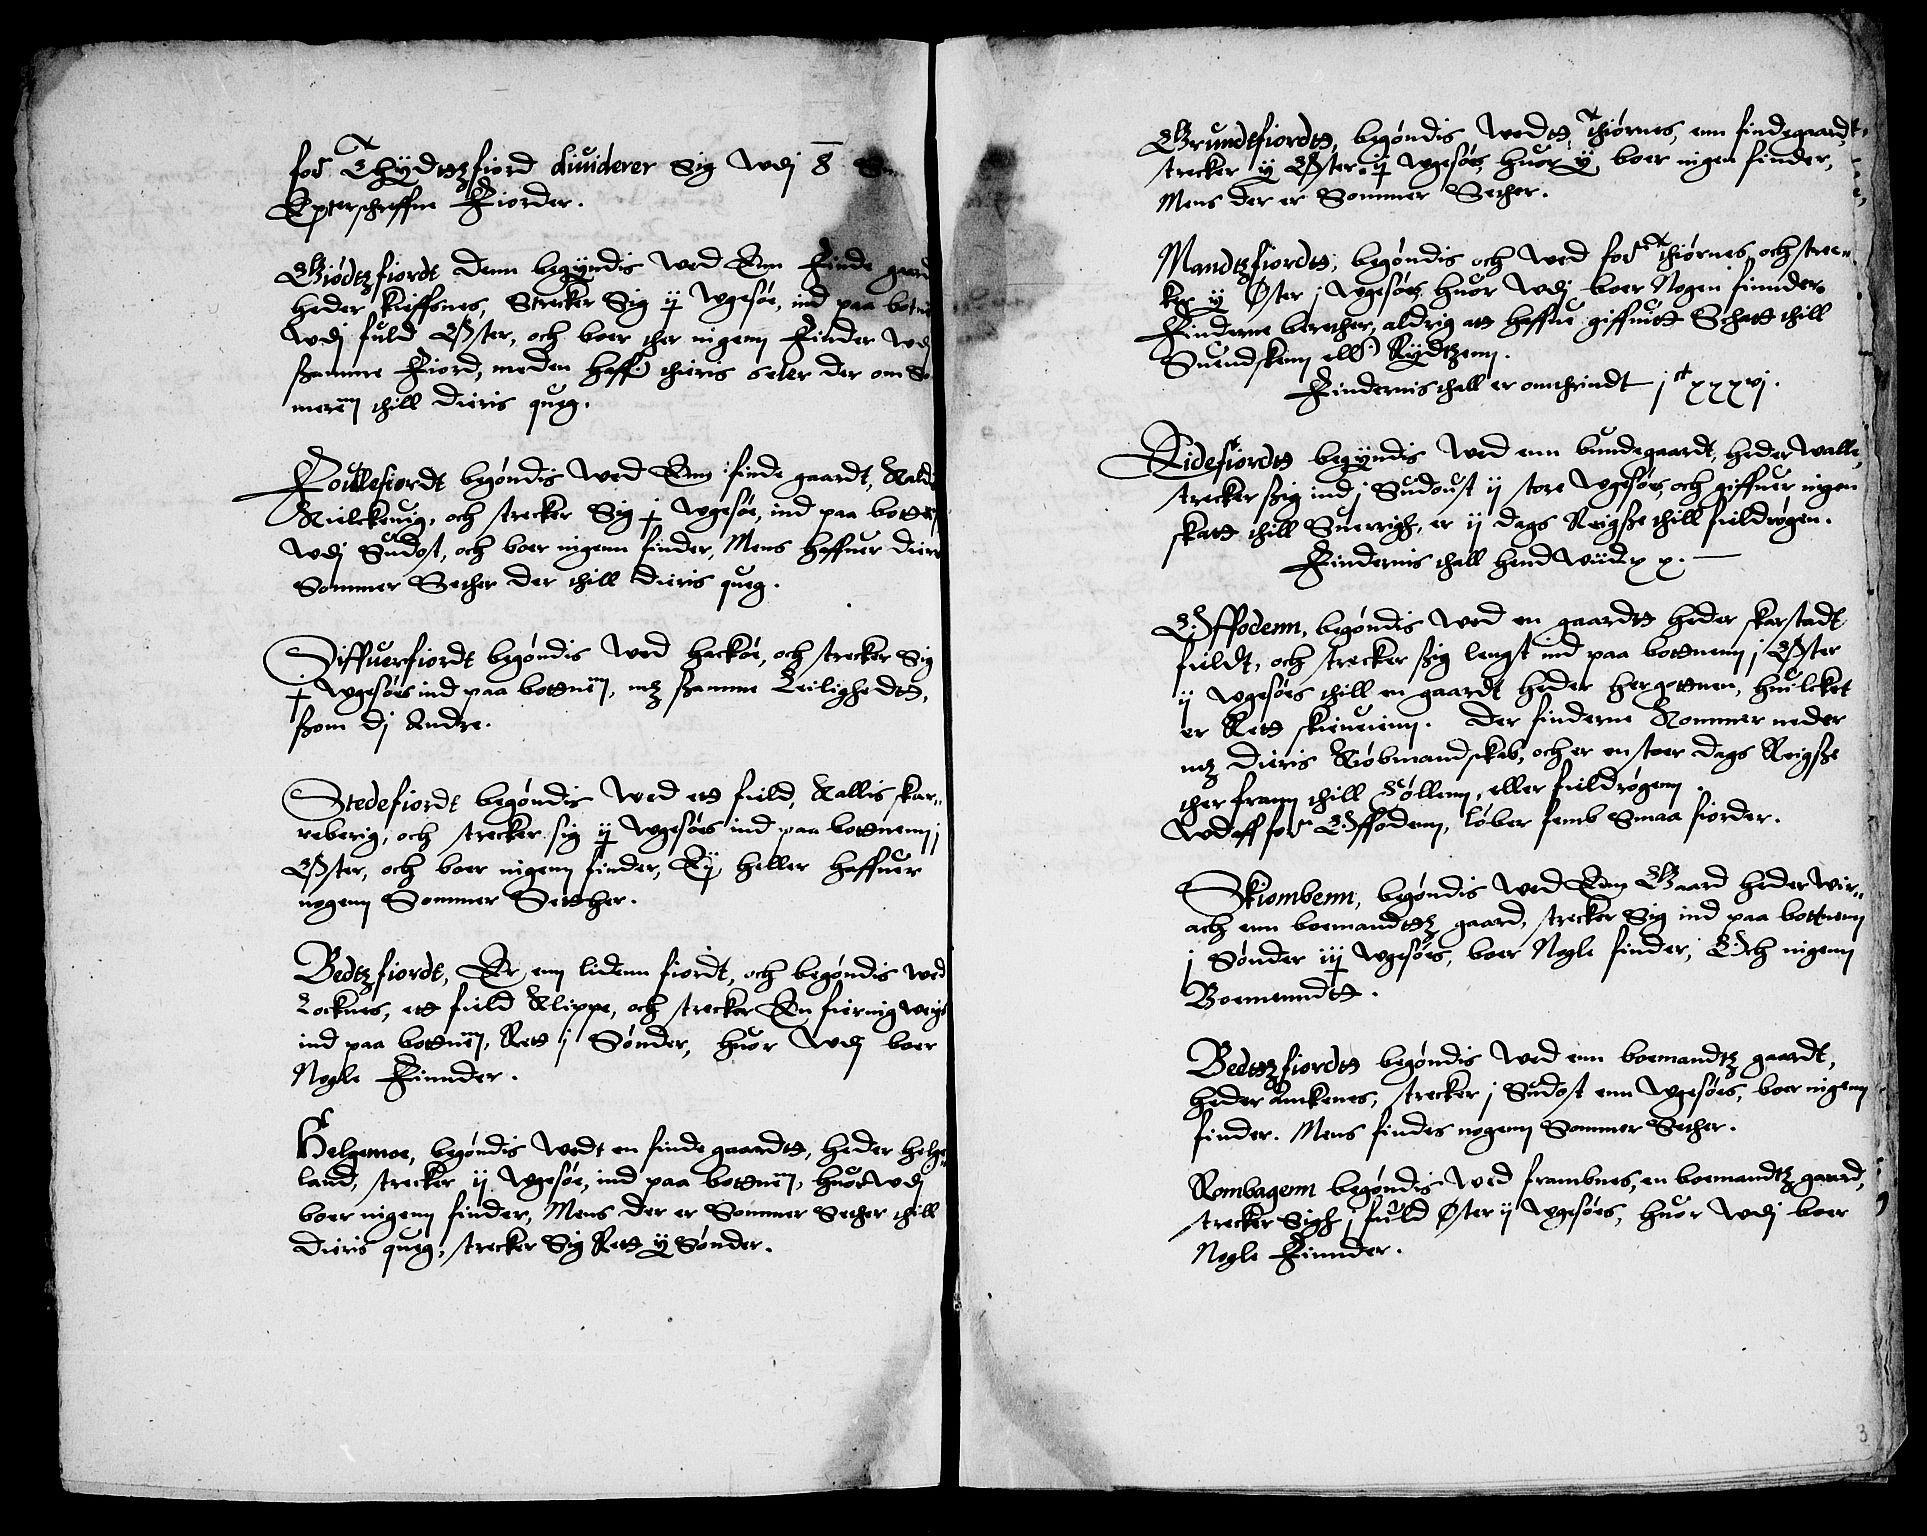 for.ne Thÿdtzfiord diuiderer Sig wdj 8
Epterschreffne Fiorder.
Giødtzfiordt denn begÿndis wed Enn Finde gaard
heder kieffsnes, Strecker Sig ij wgesøe, ind paa botnen
wdj fuld Øster, och boer ther ingenn Finder wdj
ßamme Fiord, meden haffuer thieris seter der om So-
merenn thill dieris queg.
Foullefiordt begøndis wed Enn finde gaardt, Kaldis
Nielckeuig, och strecker Sig j wgesøe, ind paa botten
wdj Sudost, och boer ingenn finder, Mens haffuer dieris
Sommer Secher der thill dieris queg.
Siffuerfiordt begøndis wed hackøe, och strecker Sig
j wgesøes ind paa bottnenn, mz ßamme Leilighedtt,
ßom dj Andre.
Stedefiordt begøndis wed ett field, Kallis skar-
reberig, och strecker sig ij wgesøes ind paa bottnenn j
Øster, och boer ingenn finder, Eÿ heller haffuer
nogenn Sommer Setther.
Bedtzfiordt, Er enn lidenn fiordt, och begøndis wed
Locknes, ett field Klippe, och strecker En fiering weigs
ind paa bottnenn, Rett j Sønder, huor wdj boer
Nogle Finnder.
Helgemoe, begøndis wedt en finde gaardtt, heder helge-
land, strecker ij wgesøe, ind paa bottnenn, huor wdj
boer ingenn finder, Mens der er Sommer Secher thill
dieris queg, strecker Sig Rett ÿ Sønder.
Grundtfiordtt, begøndis wedtt Thiørnes, enn findegaardt,
strecker ÿ Øster ij wgesøes, huor ÿ boer ingen finder,
Mens der er Sommer Secher.
Mandtzfiordtt, begøndis och wed for.ne Thiørnes, och strec-
ker ÿ Øster j wgesøes, huor wdj boer Nogen finnder
Finderne berether, aldrig att haffue giffuett Schatt thill
Suendskenn eller Rÿdtzenn.
Findernis thall er omthrindt j ct xxxvj.
Tidefiordtt begÿndis wed enn bundegaardt, heder walle,
strecker ßig ind j Sudoust ij store wgesøes, och giffuer ingen
skatt thill Suerrigh, er ij dags Reigße thill fieldrøgen.
Findernis thall hend wiid xx.
Offodenn, begøndis wed en gaardtt heder skarstadt
fieldt, och strecker ßig lengst ind paa bottnenn j Øster
ij wgesøes thill en gaardt heder hergottnen, huilcket
er Rett skieueienn. Der finderne Kommer neder
mz dieris Kiøbmandskab, och er en stoer dags Reigße
ther frann thill Kiøllenn, eller fieldrøgenn.
Wdaff for.ne Offodenn, løber femb Smaa fiorder.
Skiombenn, begøndis wed Enn Gaard heder wir-
ach enn boemandttz gaard, strecker Sig ind paa bottnenn
j Sønder iij wgesøes, boer Nogle finder, Och ingenn
Boemenndtt.
Bedttzfiordtt begøndis wed enn boemandtz gaardt,
heder Anckenes, strecker j Sudost enn wgesøes, boer ingenn
finder. Mens findes nogenn Sommer Secher.
Rombagenn begøndis wed frambnes, en boemandtz gaard,
strecker Sigh j fuld Øster ij wgesøes, huor wdj boer
Nogle Finnder.
3